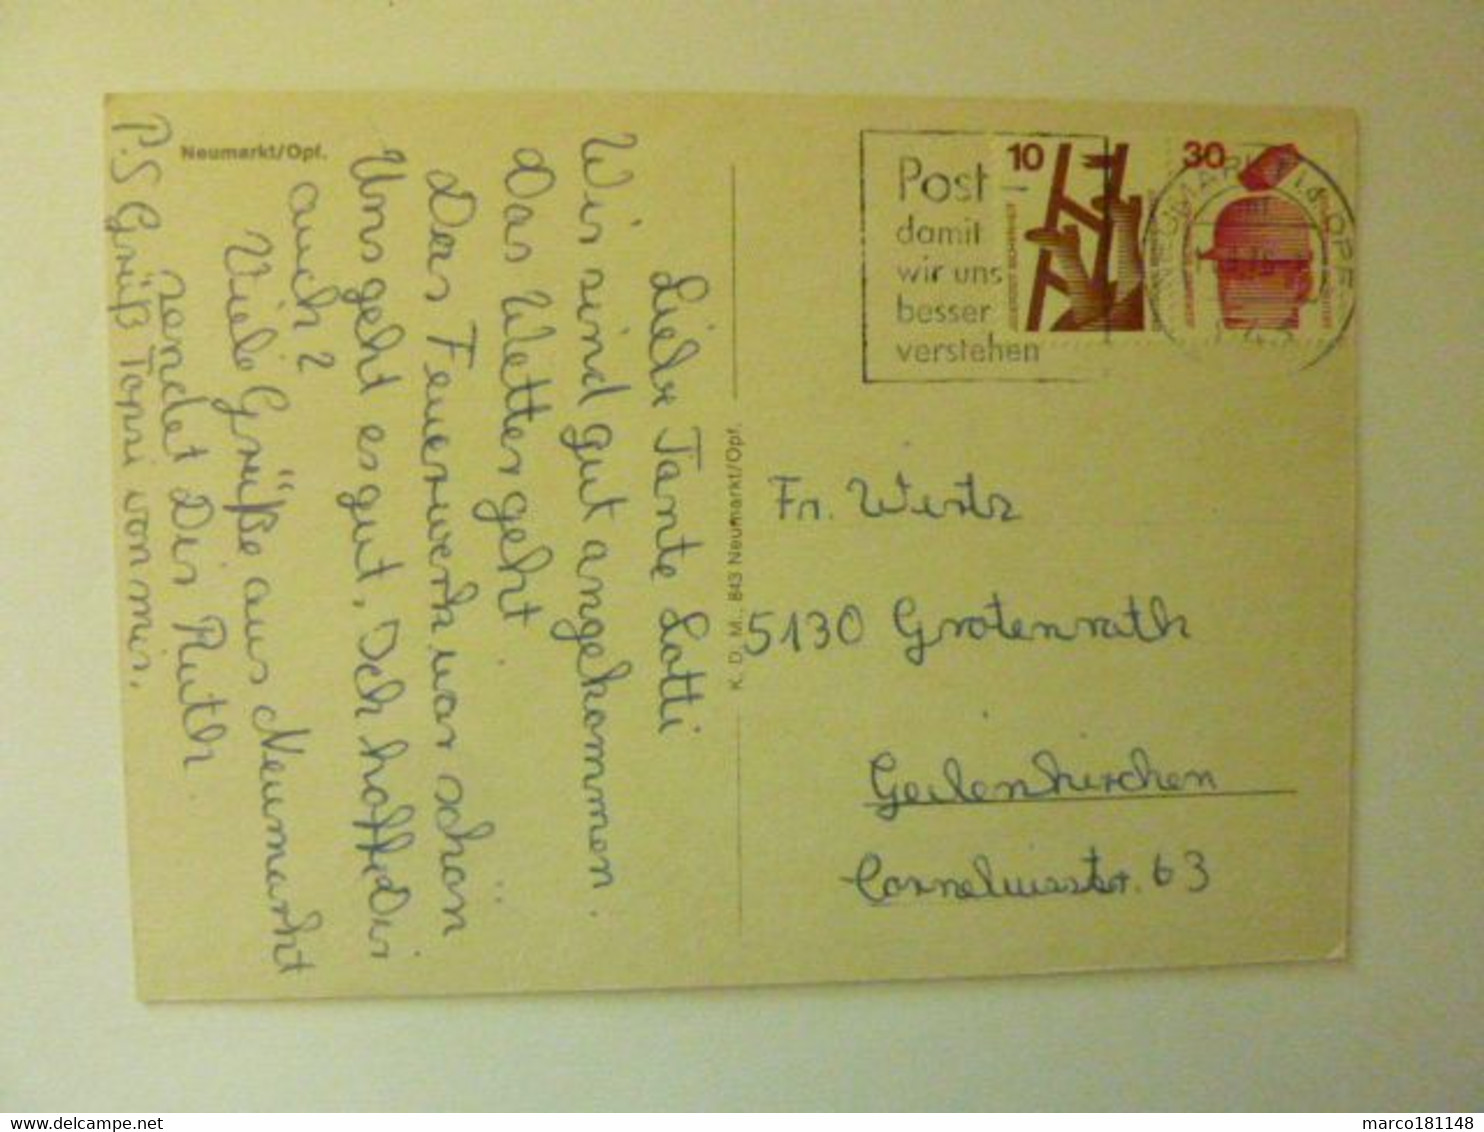 Neumarkt/Opf.
Liebe Tante Lotti
Wir sind gut angekommen.
Das Wetter geht
Das Feuerwerk war schön
Uns geht es gut, Ich hoffe Dir
auch?
Viele Grüße aus Neumarkt
sendet Dir Ruth
P.S Grüß Topsi von mir.
K. D. M., 843 Neumarkt/Opf.
Post -
damit
wir uns
besser
verstehen
10
30
NEUMARKT i.d. OPF
Fr. Wirtz
5130 Grotenrath
Geilenkirchen
Corneliusstr. 63
delcampe.net
marco181148